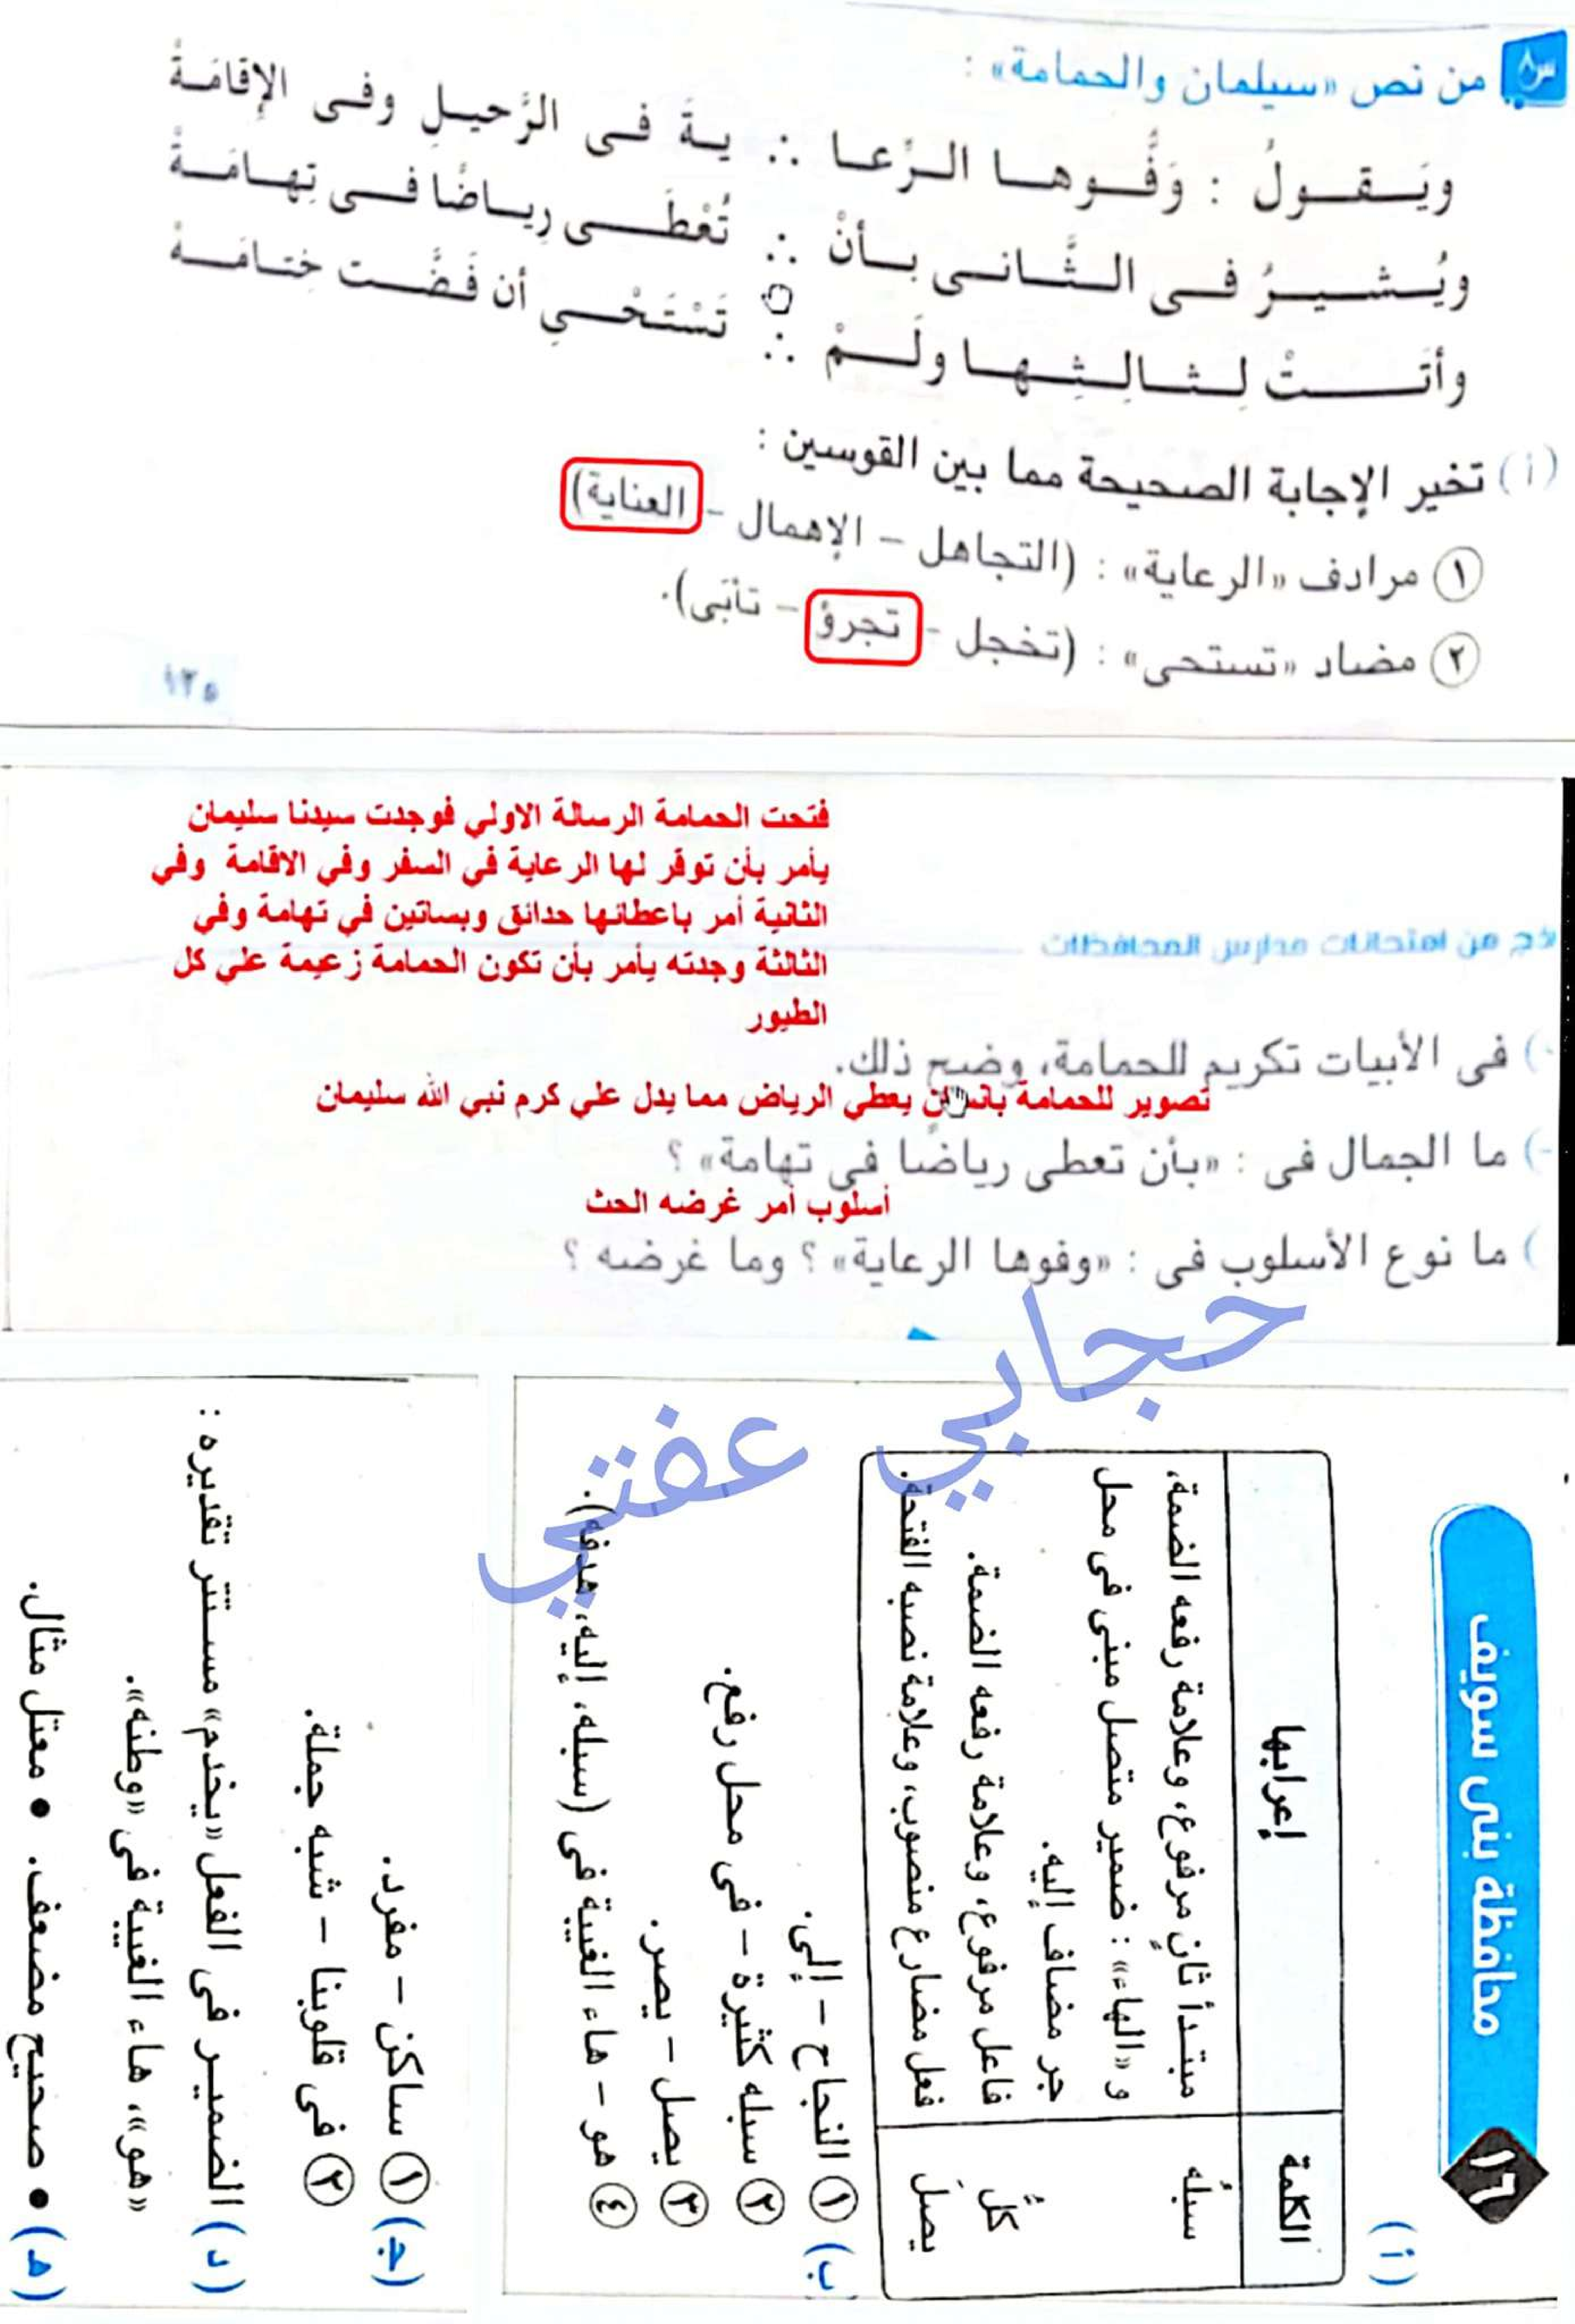 س٨ من نص «سيلمان والحمامة» :
ويَـقـولُ : وَفُّـوهـا الـرِّعـا ∴ يـةَ فـى الرَّحيـلِ وفـى الإقامَـةْ
ويُـشـيـرُ فـى الـثَّـانـى بـأنْ ∴ تُعْطَـى رِيـاضًا فـى تِهـامَـةْ
وأتَـتْ لِـثـالِـثِـهـا ولَـمْ ∴ تَسْتَحْـىِ أن فَضَّـت خِتـامَـهْ
(أ) تخير الإجابة الصحيحة مما بين القوسين :
١ مرادف «الرعاية» : (التجاهل – الإهمال – العناية)
٢ مضاد «تستحى» : (تخجل – تجرؤ – تأتى).
١٣٥
فتحت الحمامة الرسالة الاولي فوجدت سيدنا سليمان
يأمر بأن توفر لها الرعاية في السفر وفي الاقامة وفي
الثانية أمر باعطائها حدائق وبساتين في تهامة وفي
الثالثة وجدته يأمر بأن تكون الحمامة زعيمة علي كل
الطيور
من امتحانات مدارس المحافظات
فى الأبيات تكريم للحمامة، وضح ذلك.
تصوير للحمامة بانسان يعطي الرياض مما يدل علي كرم نبي الله سليمان
ما الجمال فى : «بأن تعطى رياضًا فى تهامة» ؟
أسلوب أمر غرضه الحث
ما نوع الأسلوب فى : «وفوها الرعاية» ؟ وما غرضه ؟
حجابي عفتي
١٦ محافظة بنى سويف
(أ)
الكلمة إعرابها
سبلُه مبتدأ ثانٍ مرفوع، وعلامة رفعه الضمة،
و«الهاء» : ضمير متصل مبنى فى محل
جر مضاف إليه.
كلُّ فاعل مرفوع، وعلامة رفعه الضمة.
يصلَ فعل مضارع منصوب، وعلامة نصبه الفتحة.
(ب) ١ النجاح – إلى.
٢ سبله كثيرة – فى محل رفع.
٣ يصل – يصر.
٤ هو – هاء الغيبة فى (سبله، إليه، هدفه).
(جـ) ١ ساكن – مفرد.
٢ فى قلوبنا – شبه جملة.
(د) الضميـر فى الفعل «يخدم» مسـتتر تقديره :
«هو»، هاء الغيبة فى «وطنه».
(هـ) • صحيح مضعف. • معتل مثال.